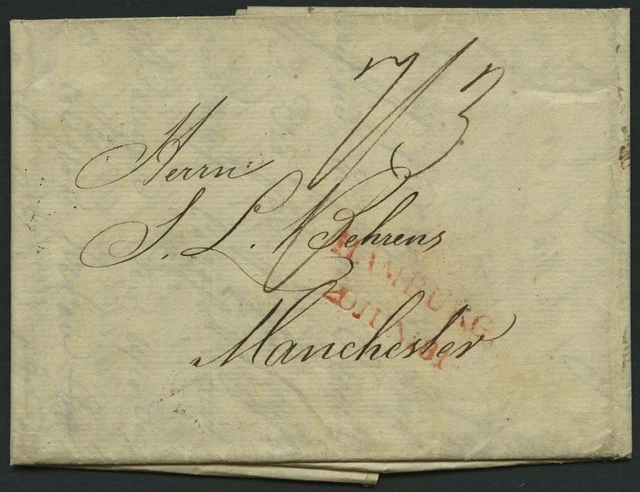 7/3
Herrn
S. L. Behrens
HAMBURG
Manchester